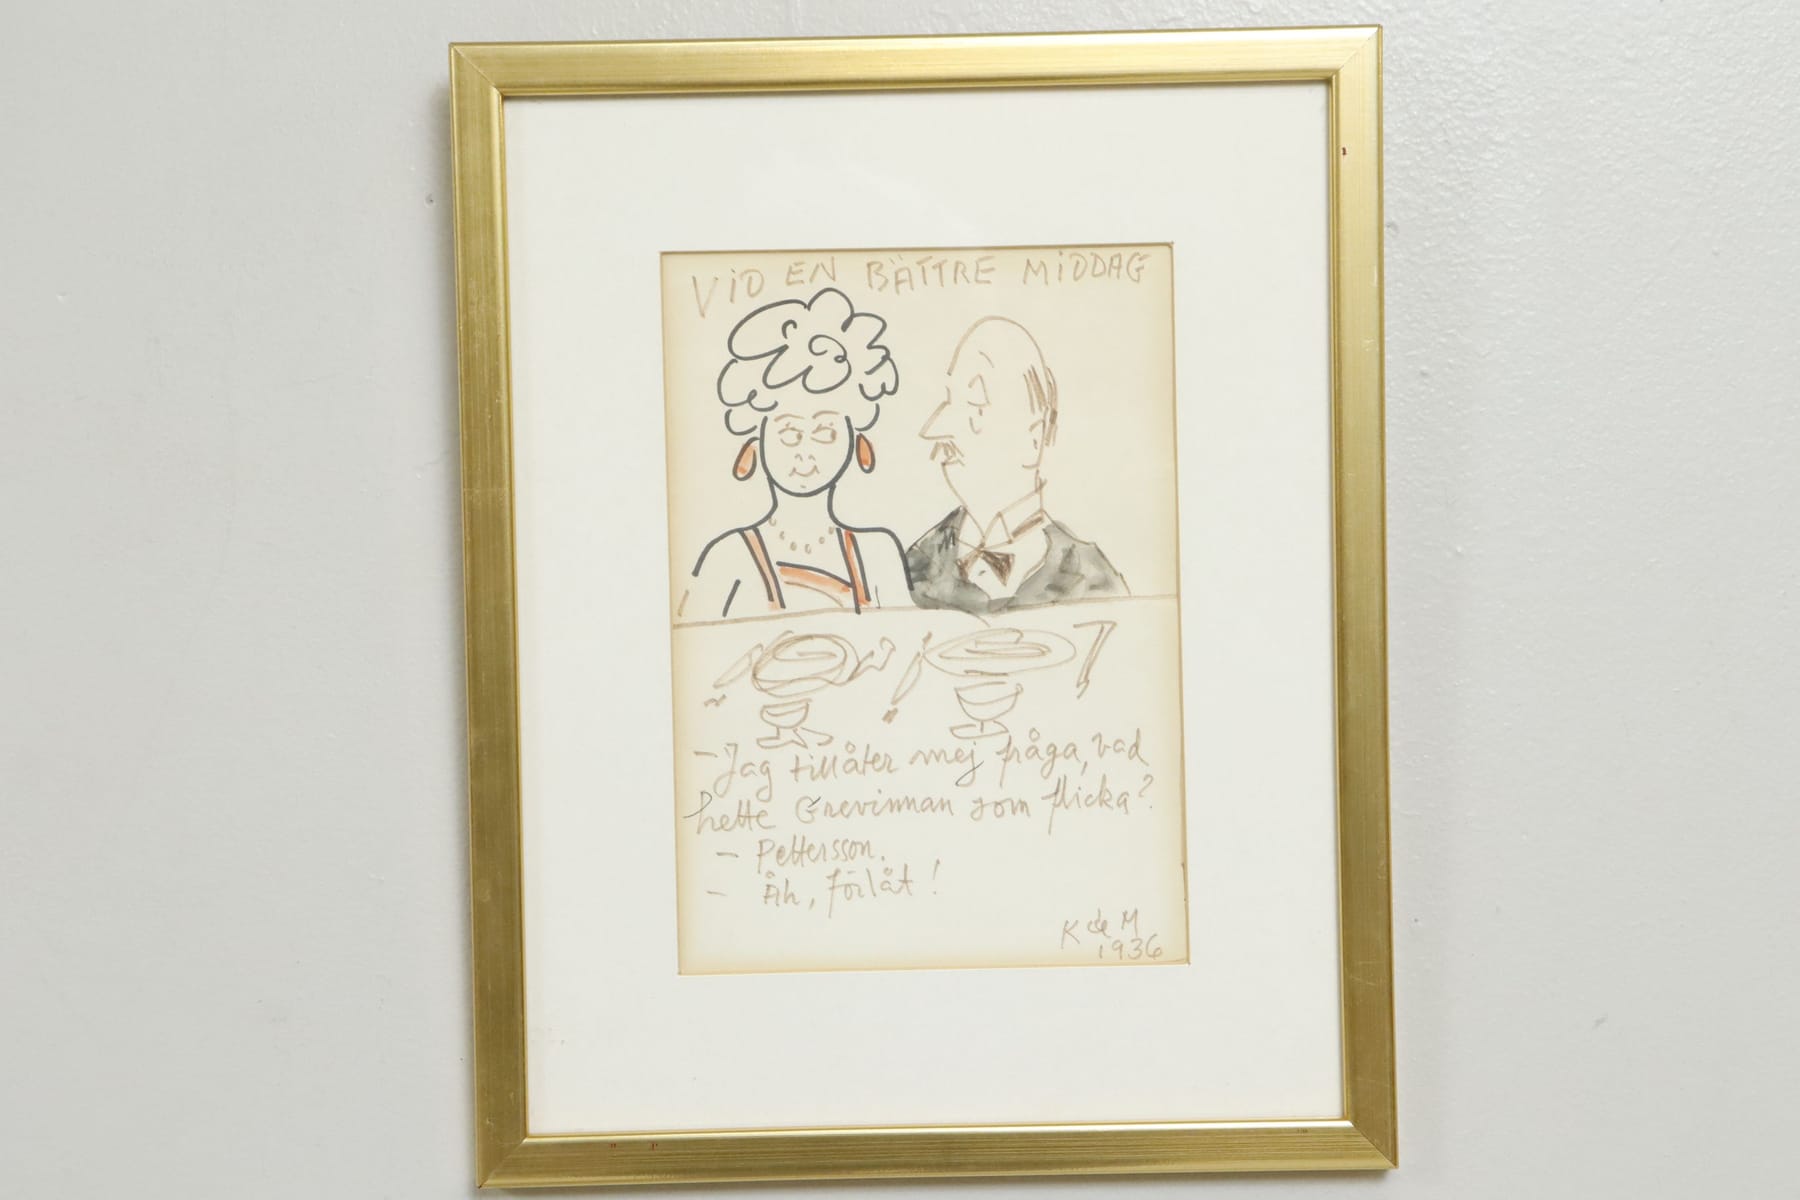 VID EN BÄTTRE MIDDAG
- Jag tillåter mej fråga, vad
hette Grevinnan som flicka?
- Pettersson.
- Åh, förlåt!
K de M
1936